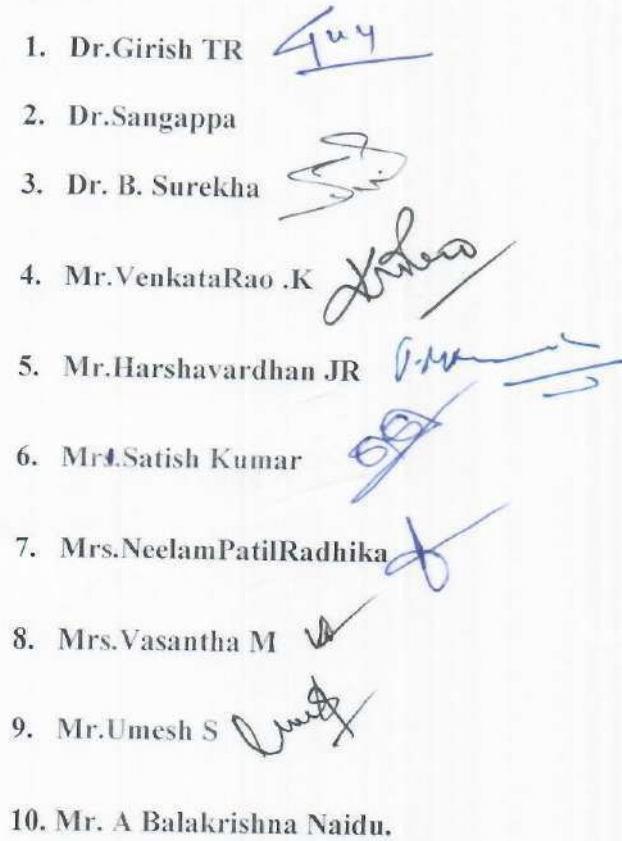 1. Dr.Girish TR
2. Dr.Sangappa
3. Dr. B. Surekha
4. Mr.VenkataRao .K
5. Mr.Harshavardhan JR
6. Mrs.Satish Kumar
7. Mrs.NeelamPatilRadhika
8. Mrs.Vasantha M
9. Mr.Umesh S
10. Mr. A Balakrishna Naidu.